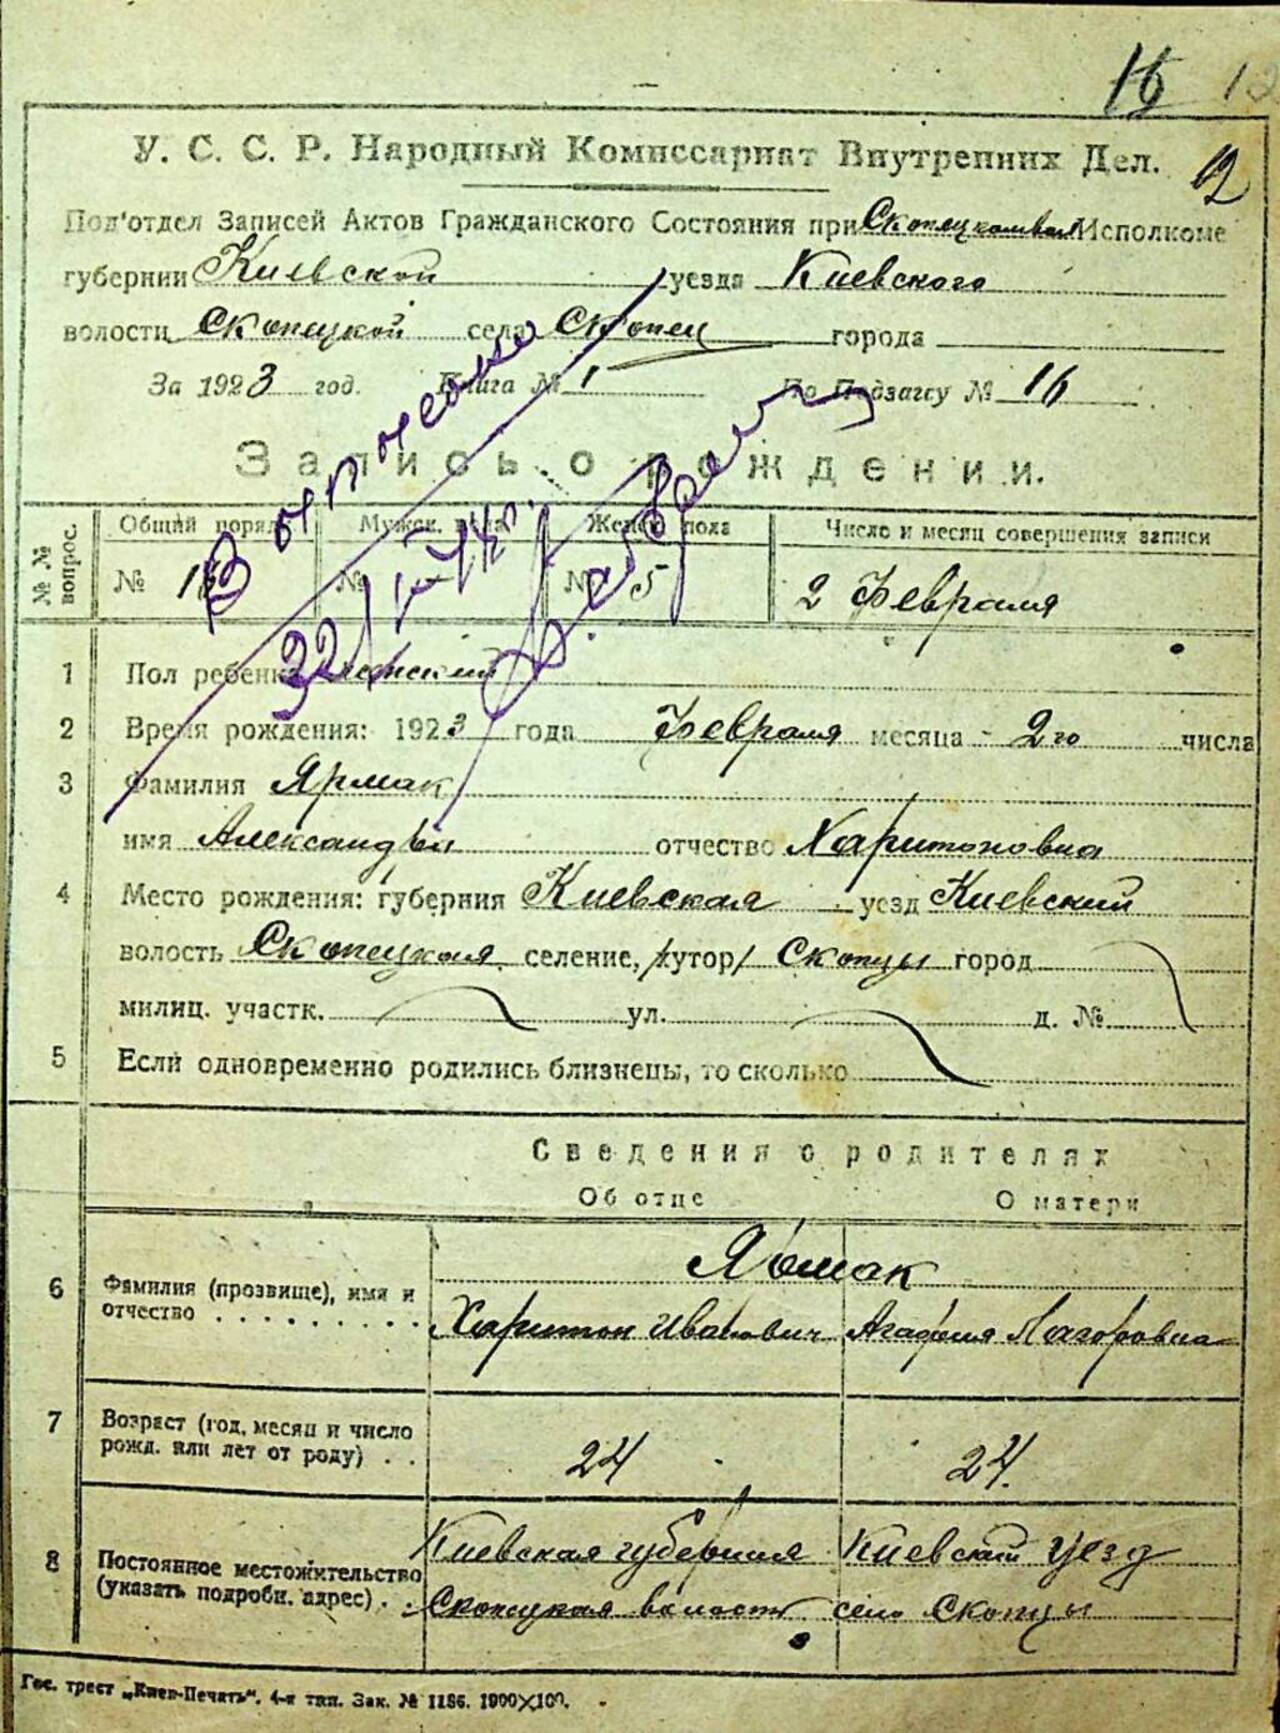 16
12
У. С. С. Р. Народный Комиссариат Внутренних Дел.
Под'отдел Записей Актов Гражданского Состояния при Исполкоме
губернии Киевской уезда Киевского
волости Скопецкой села Скопец города
За 1923 год. Книга № 1 По Подзагсу № 16
Запись о рождении.
№ № вопрос. Общий поряд. Мужск. пола Женск. пола Число и месяц совершения записи
№ 16 № № 5 2 Февраля
1 Пол ребенка женский
2 Время рождения: 1923 года Февраля месяца 2го числа
3 Фамилия Ярмак
имя Александра отчество Харитоновна
4 Место рождения: губерния Киевская уезд Киевский
волость Скопецкая селение, /хутор/ Скопцы город
милиц. участк. ул. д. №
5 Если одновременно родились близнецы, то сколько
Сведения о родителях
Об отце О матери
Ярмак
6 Фамилия (прозвище), имя и
отчество Харитон Иванович Агафия
7 Возраст (год, месяц и число
рожд. или лет от роду) 24 24.
8 Постоянное местожительство Киевская губерния Киевский уезд
(указать подробн. адрес) Скопецкая волость село Скопцы
Гос. трест „Киев-Печать". 4-я тип. Зак. № 1186. 1900×100.